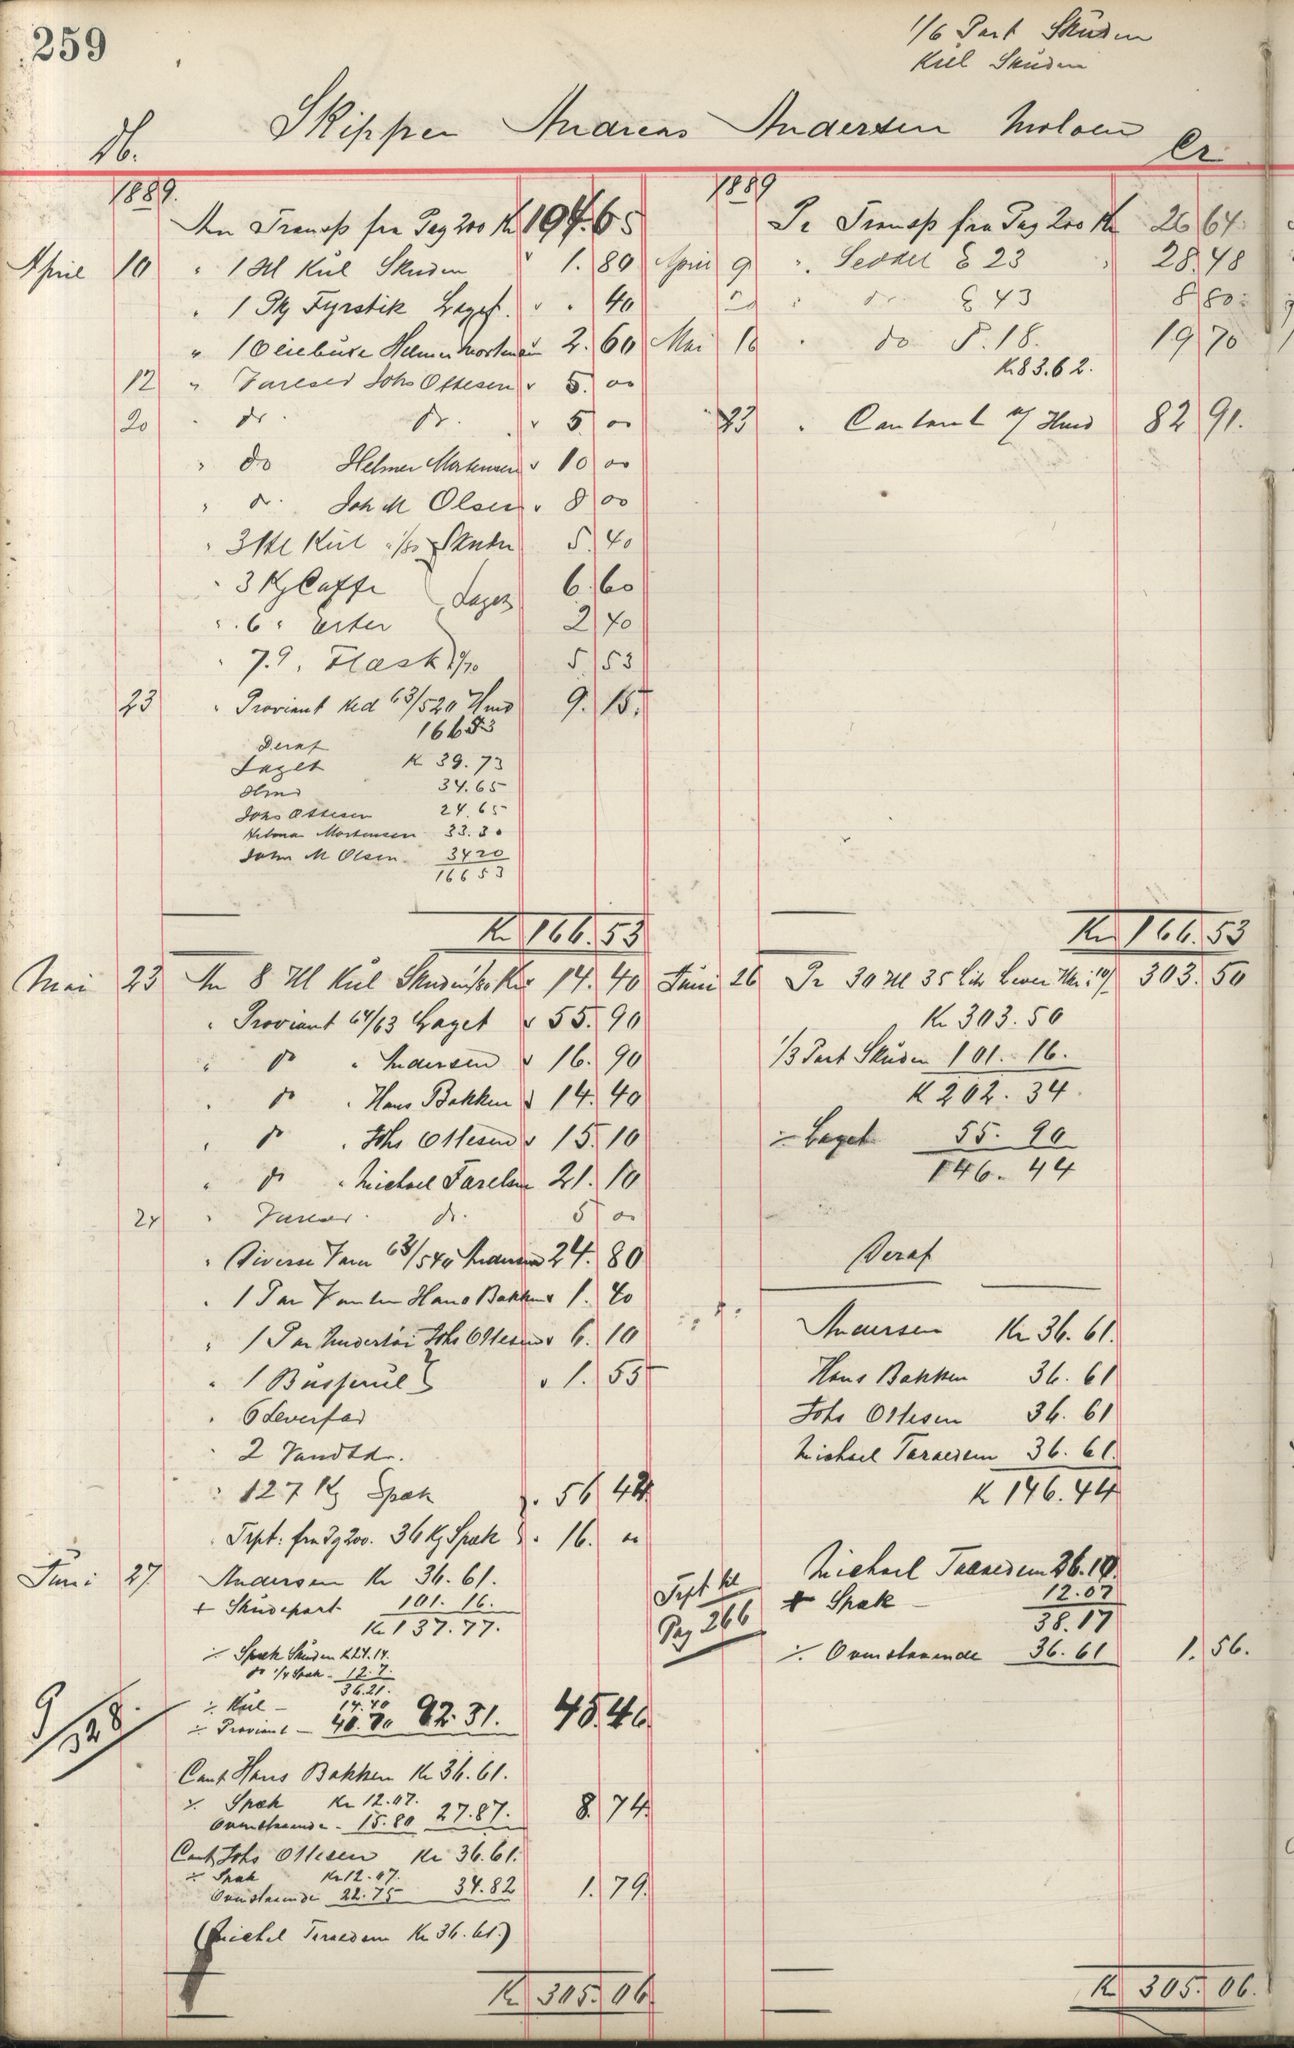 259
1/6 Part Skuden
Kul Skuden
Skipper Andreas Andersen Moloen
Db.
Cr
1889.
An Transp fra Pag 200 Kr 104.65
April 10 " 1 Hl Kul Skuden " 1.80
" 1 Pk Fyrstik Laget. " " 40
" 1 Oliebuxe Helmer Mortensen 2.60
12 " Vareser Johs Ottesen " 5.00
20 " do do. " 5.00
" do Helmer Mortensen " 10.00
" do. Joh M Olsen " 8.00
" 3 Hl Kul " 1/80 Skuden 5.40
" 3 Kg Caffe 6.60
Laget
" 6 " Erter 2.40
" 7.9 " Flæsk " 0/70 5.53
23 " Proviant Ked 63/520 Hmd 9.15
166 53
Deraf
Laget K 39.73
Hmd 34.65
Johs Ottesen 24.65
Helmer Mortensen 33.30
John M Olsen 34 20
166 53
Kr 166.53
Mai 23 An 8 Hl Kul Skuden 1/80 Kr 14.40
" Proviant 64/63 Laget " 55.90
" do " Andersen " 16.90
" do " Hans Bakken " 14.40
" do " Johs Ottesen " 15.10
" do " Michael Taraldsen 21.10
24 " Vareser do. 5 00
" Diverse Varer 63/540 Andersen 24.80
" 1 Par Vanter Hans Bakken " 1.40
" 1 Par Undertøi Johs Ottesen " 6.10
" 1 Busserul " 1.55
" 6 Leverfad
" 2 Vandtd.
" 127 Kg Spæk " 56 44
" Trpt: fra Pg 200. 36 Kg Spæk " 16. 00
Juni 27 Andersen Kr 36.61.
+ Skudepart 101.16.
Kr 137.77.
÷ Spæk Skuden K 24.14.
do 1/4 Spæk - 12.7.
36.21.
÷ Kul - 14.40
÷ Proviant - 40.70 92.31. 45.46
9/328.
Cont Hans Bakken Kr 36.61.
÷ Spæk Kr 12.07.
Ovenstaaende - 15.80 27.87. 8.74.
Cont Johs Ottesen Kr 36.61.
÷ Spæk Kr 12.07.
Ovenstaaende 22.75 34.82 1.79.
(Michel Taraldsen Kr 36.61.)
Kr 305.06
1889
Pr Transp fra Pag 200 Kr 26 64
April 9 " Seddel E 23 " 28.48
" do E 43 8 80
Mai 16 " do P. 18. 19 70
Kr 83.62.
23 " Contant a/ Hmd 82 91.
Kr 166.53
Juni 26 Pr 30 Hl 35 Litr Lever Hl i 10/ 303.50
Kr 303.50
1/3 Part Skuden 101.16.
K 202.34.
÷ Laget 55.90
146.44
Deraf
Andersen Kr 36.61.
Hans Bakken 36.61
Johs Ottesen 36.61
Michael Taraldsen 36.61.
K 146.44
Trpt til
Pag 266
Michael Taraldsen 26.10.
+ Spæk - 12.07
38.17
÷ Ovenstaaende 36.61 1.56.
K 305.06.